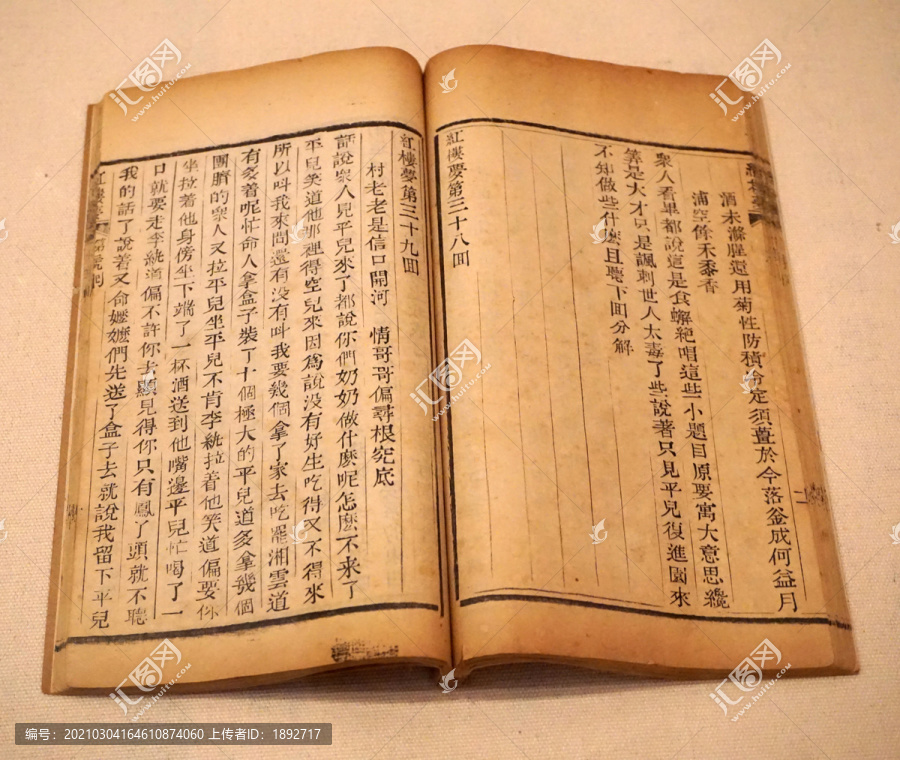 酒未滌腥還用菊性防積冷定須薑於今落釜成何益月
浦空餘禾黍香
衆人看畢都說這是食蠏絶唱這些小題目原要寓大意思纔
算是大才只是諷刺世人太毒了些說著只見平兒復進園來
不知做些什麽且聽下回分解
紅樓夢第三十八回
紅樓夢第三十九回
村老老是信口開河 情哥哥偏尋根究底
話說衆人見平兒來了都說你們奶奶做什麽呢怎麽不來了
平兒笑道他那裡得空兒來因爲說没有好生吃得又不得來
所以叫我來問還有没有叫我要幾個拿了家去吃罷湘雲道
有多着呢忙命人拿盒子裝了十個極大的平兒道多拿幾個
團臍的衆人又拉平兒坐平兒不肯李紈拉着他笑道偏要你
坐拉着他身傍坐下端了一杯酒送到他嘴邊平兒忙喝了一
口就要走李紈道偏不許你去顯見得你只有鳳丫頭就不聽
我的話了說着又命嬷嬷們先送了盒子去就說我留下平兒
紅樓夢
汇图网
www.huitu.com
编号：20210304164610874060 上传者ID：1892717